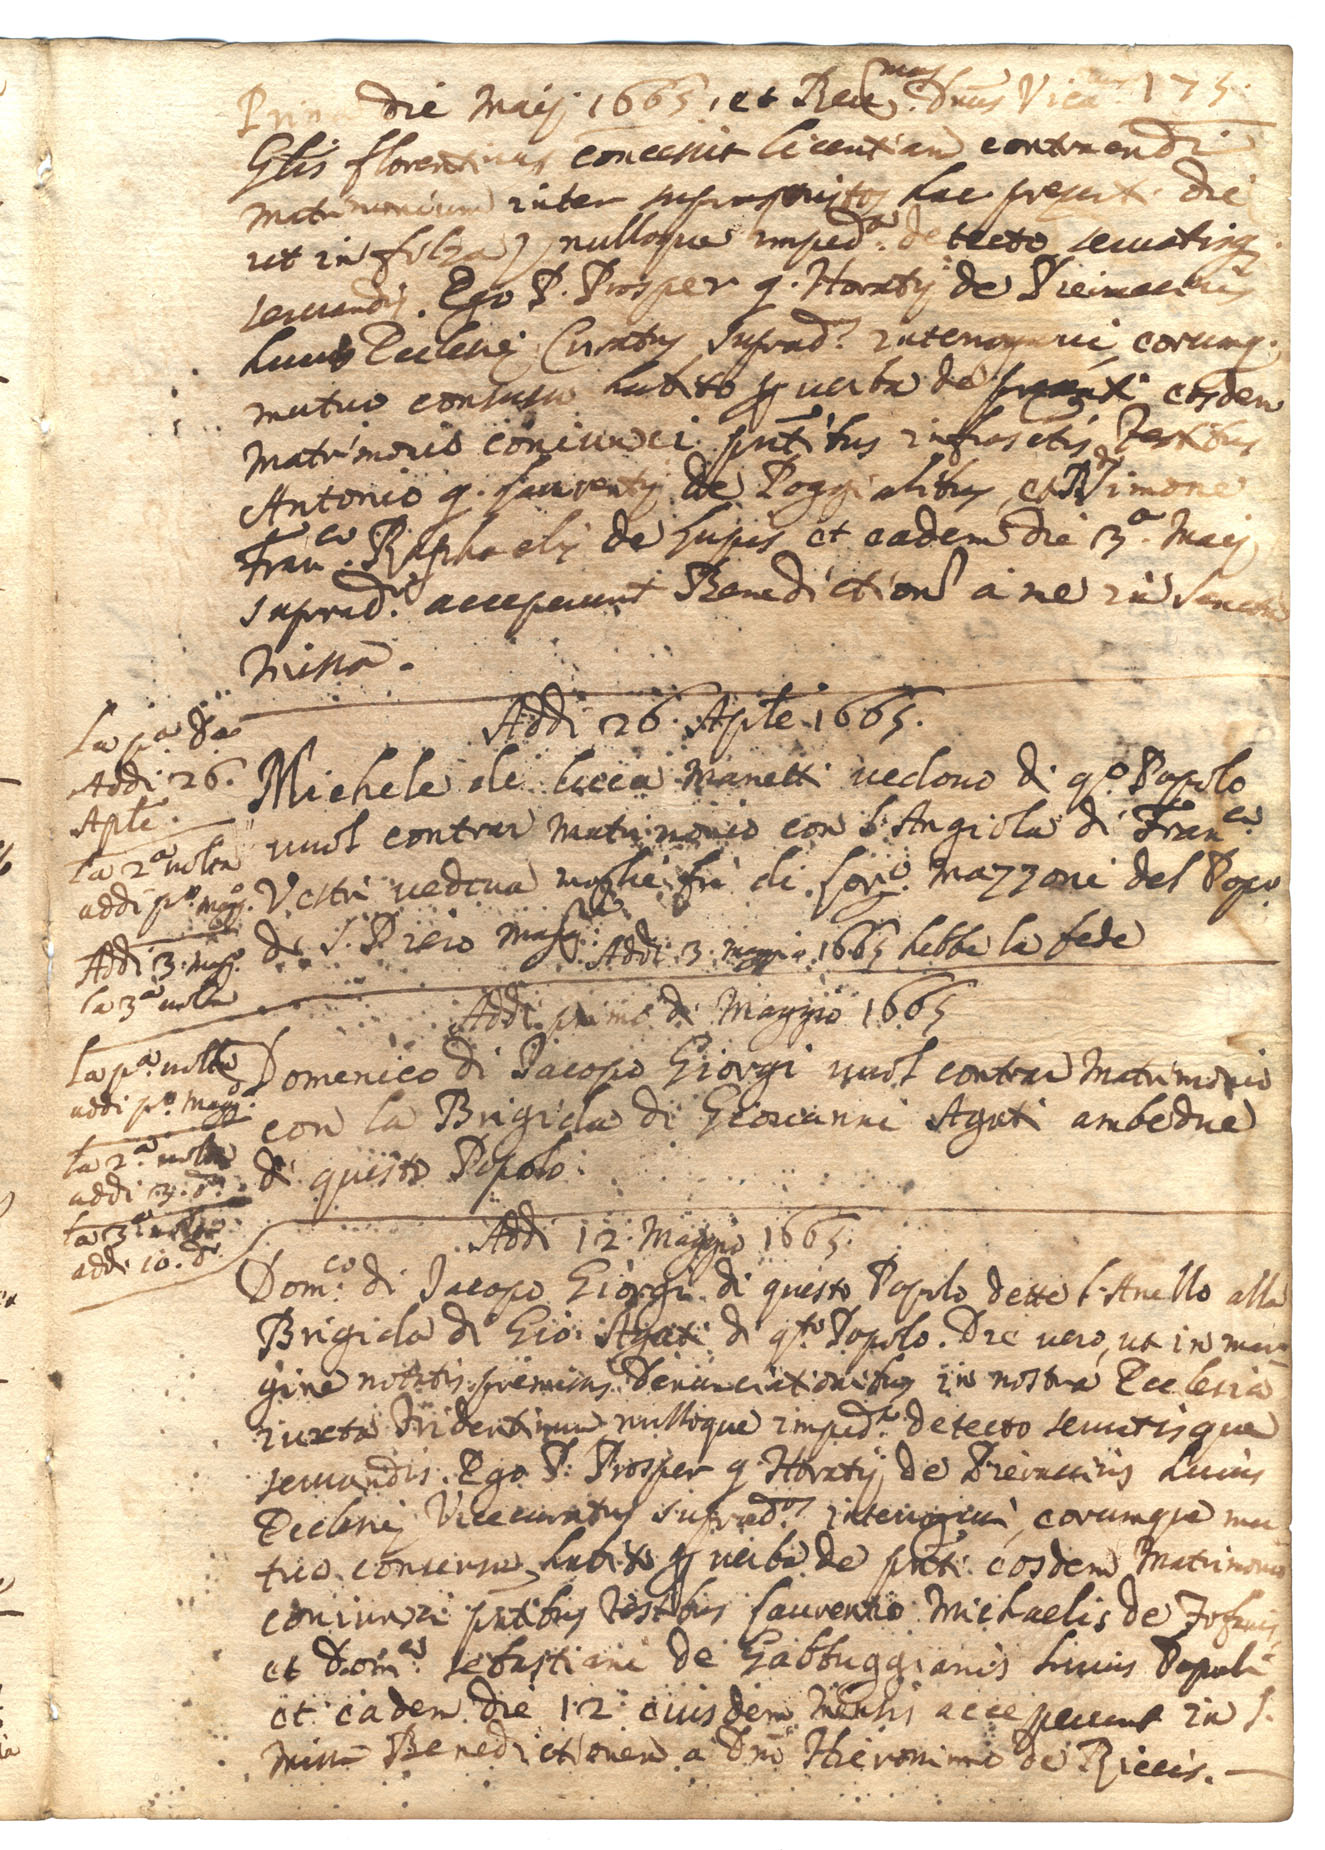 Prima die Maij 1665, et Reu.mus Dnus Vica.us 175.
Glis florentinus concessit licentiam contraendi
matrimonium inter suprascriptos hac present. die
ut in filza) nulloque imped.o detecto seruatisq.
seruandis. Ego P. Prosper q. Horatij de Pieruccinis
huius Ecclesie Curatus suprad.s interrogaui, eorumq.
mutuo consensu habito p uerba de eosdem
matrimonio coniunxi pntibus infrasctis Testibus
Antonio q. Laurentij de Poggialibus, et Simone
Fran.co Raphaelis de Lupis et eadem die 3.a Maij
suprad.i acceperunt Benediction a me in Sancta
Missa.
Addi 26. Aple. 1665.
La p.a Da
Addi 26.
Aple.
La 2.a uolta
addi p.o magg.
Addi 3. mag.
la 3.a uolta
Michele di Lucca Manetti uedouo di q.o Popolo
uuol contrar matrimonio con l'Angiola di Fran.co
Vestri uedoua moglie fu di Lor.o Mazzoni del Popo.
di S. Piero
Addi 3. maggio 1665 hebbe la fede
Addi primo di Maggio 1665
La p.a uolta
addi p.o magg.o
la 2.a uolta
addi 3. d.
la 3.a uolta
addi 10. d.
Domenico di Jacopo Giorgi uuol contrar Matrimonio
con la Brigida di Giouanni Agati ambedue
di questo Popolo.
Addi 12. Maggio 1665.
Dom.co di Jacopo Giorgi di questo Popolo dette l'Anello alla
Brigida di Gio. Agati di q.to Popolo. Die uero, ut in mar
gine notatis premissis Denunciationibus in nostra Ecclesia
iuxta Tridentinum nulloque imped.o detecto seruatisque
seruandis. Ego P. Prosper q. Horatij de Pieruccinis huius
Ecclesie Vicecuratus suprad.os interrogaui, eorumque mu
tuo consensu habito p uerba de pnti eosdem Matrimonio
coniunxi pntibus Testibus Laurentio Michaelis de
et Dom.co Sebastiani de Gabbuggianis huius Populi
et eadem die 12 eiusdem mensis acceperunt in S.
missa Benedictionem a Dno Hieronimo de Riccis.